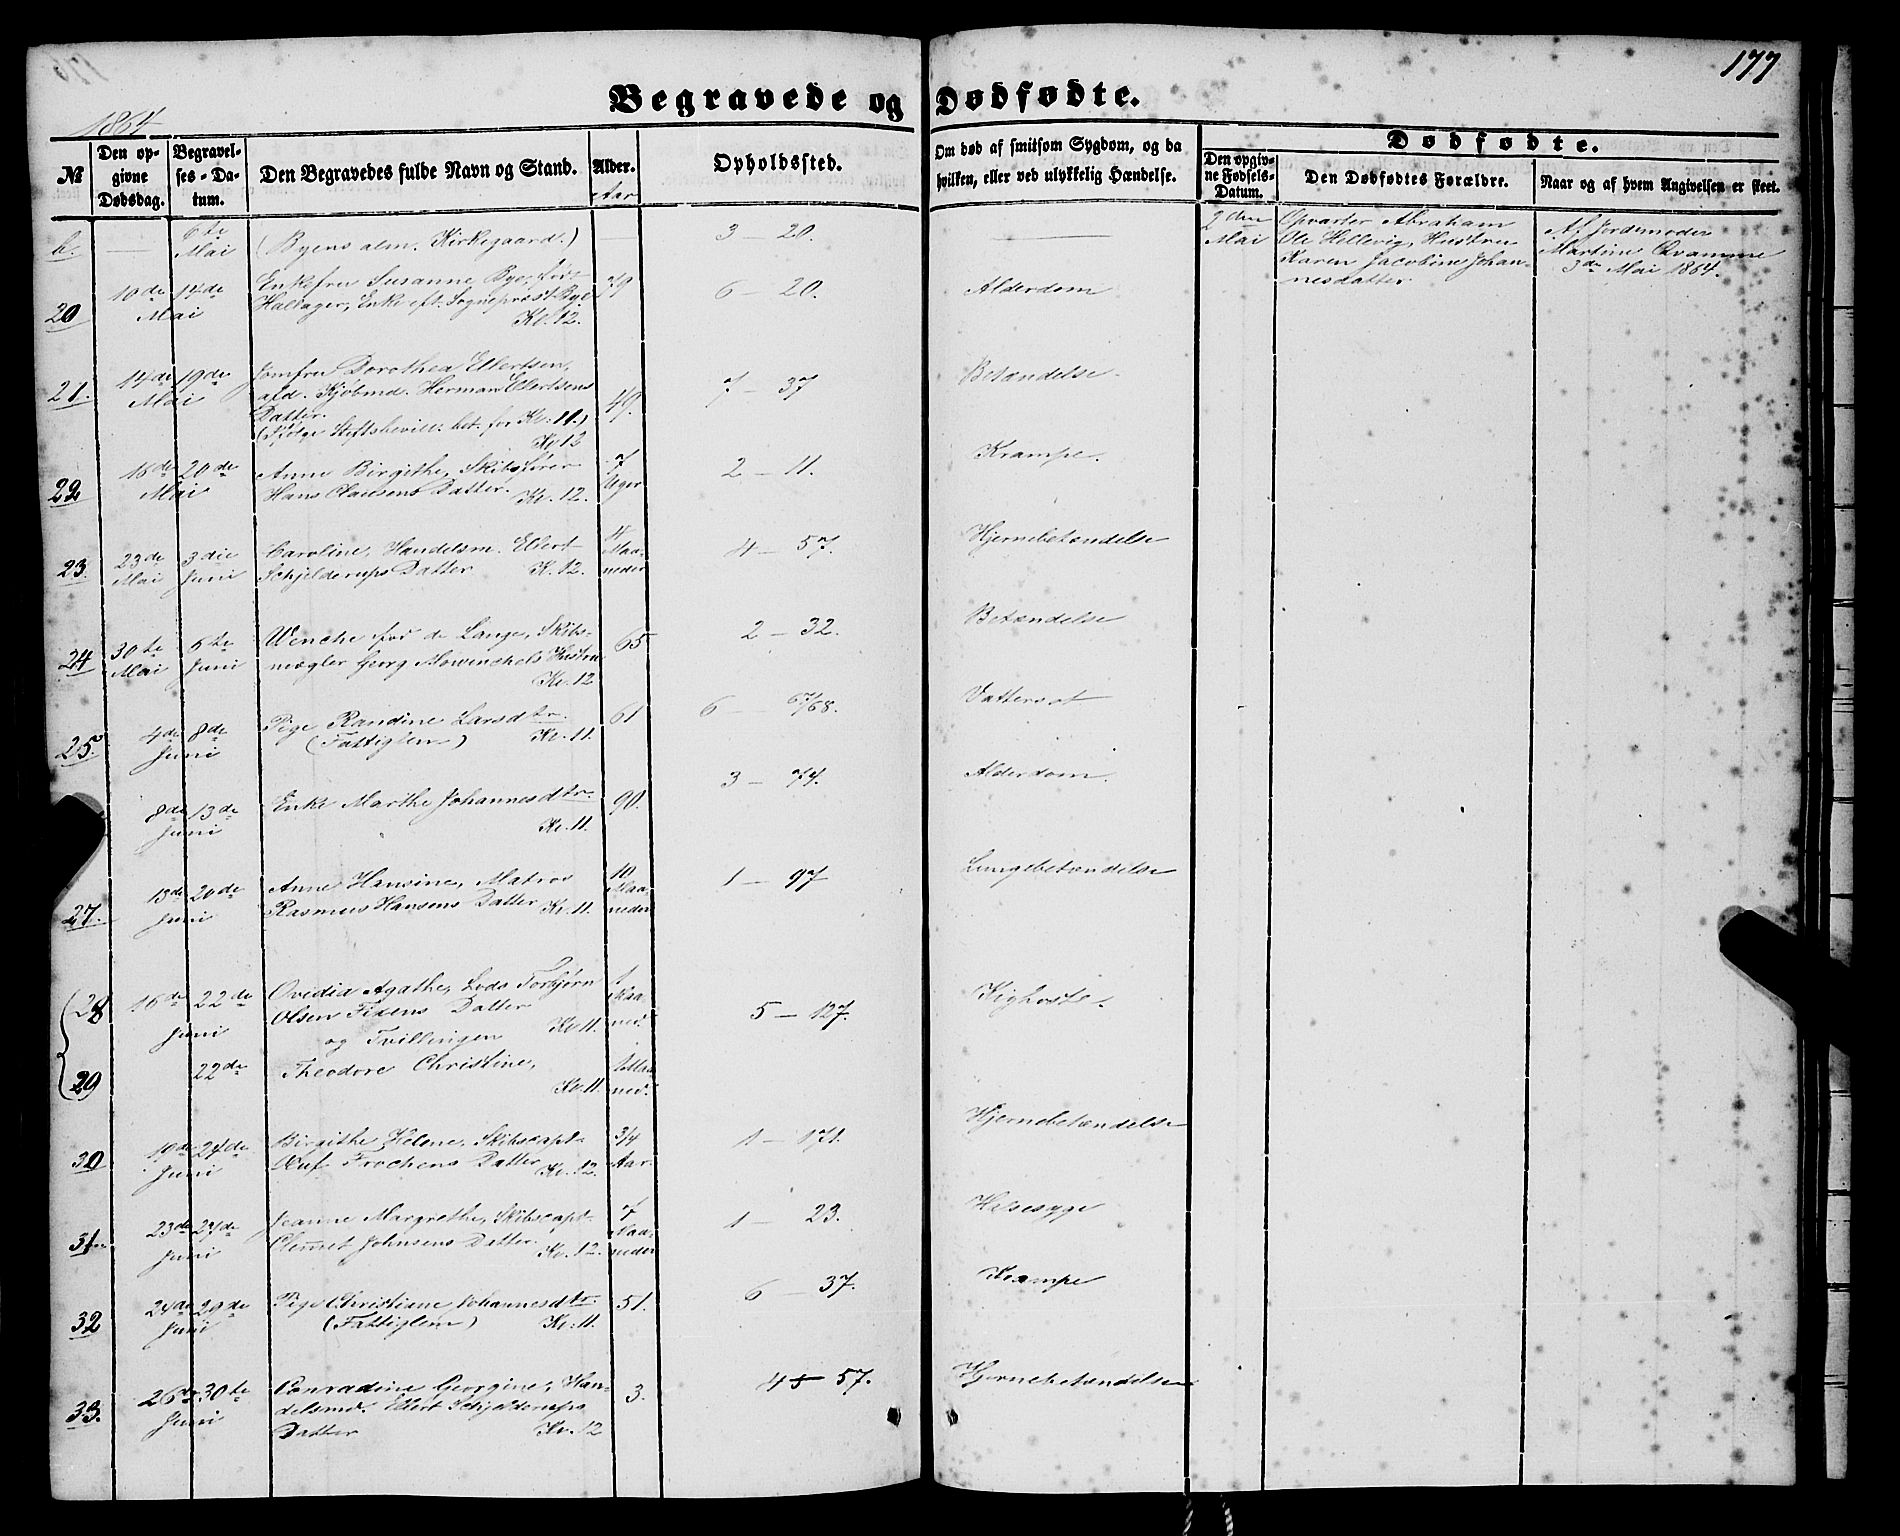 177
Begravede og Dødfødte.
1864
№
Den op-
givne
Dødsdag.
Begravel-
ses-Da-
tum.
Den Begravedes fulde Navn og Stand.
Alder.
Aar
Opholdssted.
Om død af smitsom Sygdom, og da
hvilken, eller ved ulykkelig Hændelse.
Dødfødte.
Den opgiv-
ne Fødsels-
Datum.
Den Dødfødtes Forældre.
Naar og af hvem Angivelsen er skeet.
6te
Mai
(Byens alm. Kirkegaard.)
3 20.
2den
Mai
Abraham
Ole Hellevig, Hustru
Karen Jacobine Johan-
nesdatter
Af Jordemoder
Martine Qvamme
3die Mai 1864.
20
10de 14de
Mai
Enkefru Susanne Bye, før
Hallager, Enke eft. Sognepræst Bye
Kl. 12.
79
6 - 20.
Alderdom
21.
14de 19de
Mai
Jomfru Dorothea Ellertsen,
afd. Kjøbmd. Herman Ellertsens
Datter.
(Ifølge Stiftsbevill. bet. for Kl. 11.)
Kl 12
49.
7 - 37
Betændelse.
22
16de 20de
Mai
Anne Birgithe, Skibsfører
Hans Clausens Datter.
Kl. 12.
7
Uger
2 - 11.
Krampe.
23.
23de 3die
Mai Juni
Caroline, Handelsm. Ellert
Schjelderups Datter Kl. 12.
Maa-
neder
4 - 57.
Hjernebetændelse
24
30te 6te
Mai Juni
Wenche fød de Lange, Skibs-
mægler Georg Mowinchels Hustru
Kl. 12
65
2 - 32.
Betændelse
25.
4de 8de
Juni
Pige Randine Larsdtr.
(Fattiglem) Kl. 11.
61
6 - 67/68.
Vattersot
8de 13de
Juni
Enke Marthe Johannesdtr.
Kl. 11.
90.
3 - 74.
Alderdom.
27.
13de 20de
Juni
Anne Hansine, Matros
Rasmus Hansens Datter Kl. 11.
10
Maa-
neder
1 - 97
Lungebetændelse
28
16de 22de
Juni
Ovidia Agathe, Lods Torbjørn
Olsen Fixens Datter
Kl 11.
og Tvillingen
Maa-
ned.
5 - 127.
Kighoste.
29
22de
Theodore Christine,
Kl. 11
1 Maa-
ned.
30
19de 24de
Juni
Birgithe Helene, Skibscapt.
Oluf Trochens Datter
Kl. 12.
3/4
Aar.
1 - 171.
Hjernebetændelse
31
23de 27de
Juni
Jeanne Margrethe, Skibscapt.
Clemet Johnsens Datter.
Kl. 12.
7
Maa-
neder
1 - 23.
Halsesyge
32
24de 29de
Juni
Pige Christiane Johannesdtr.
(Fattiglem) Kl. 11.
51.
6 - 37.
Krampe
33.
26de 30te
Juni
Conradine Georgine, Han-
delsmd. Ellert Schjelderups
Datter Kl. 12
3.
4 57.
Hjernebetændelse